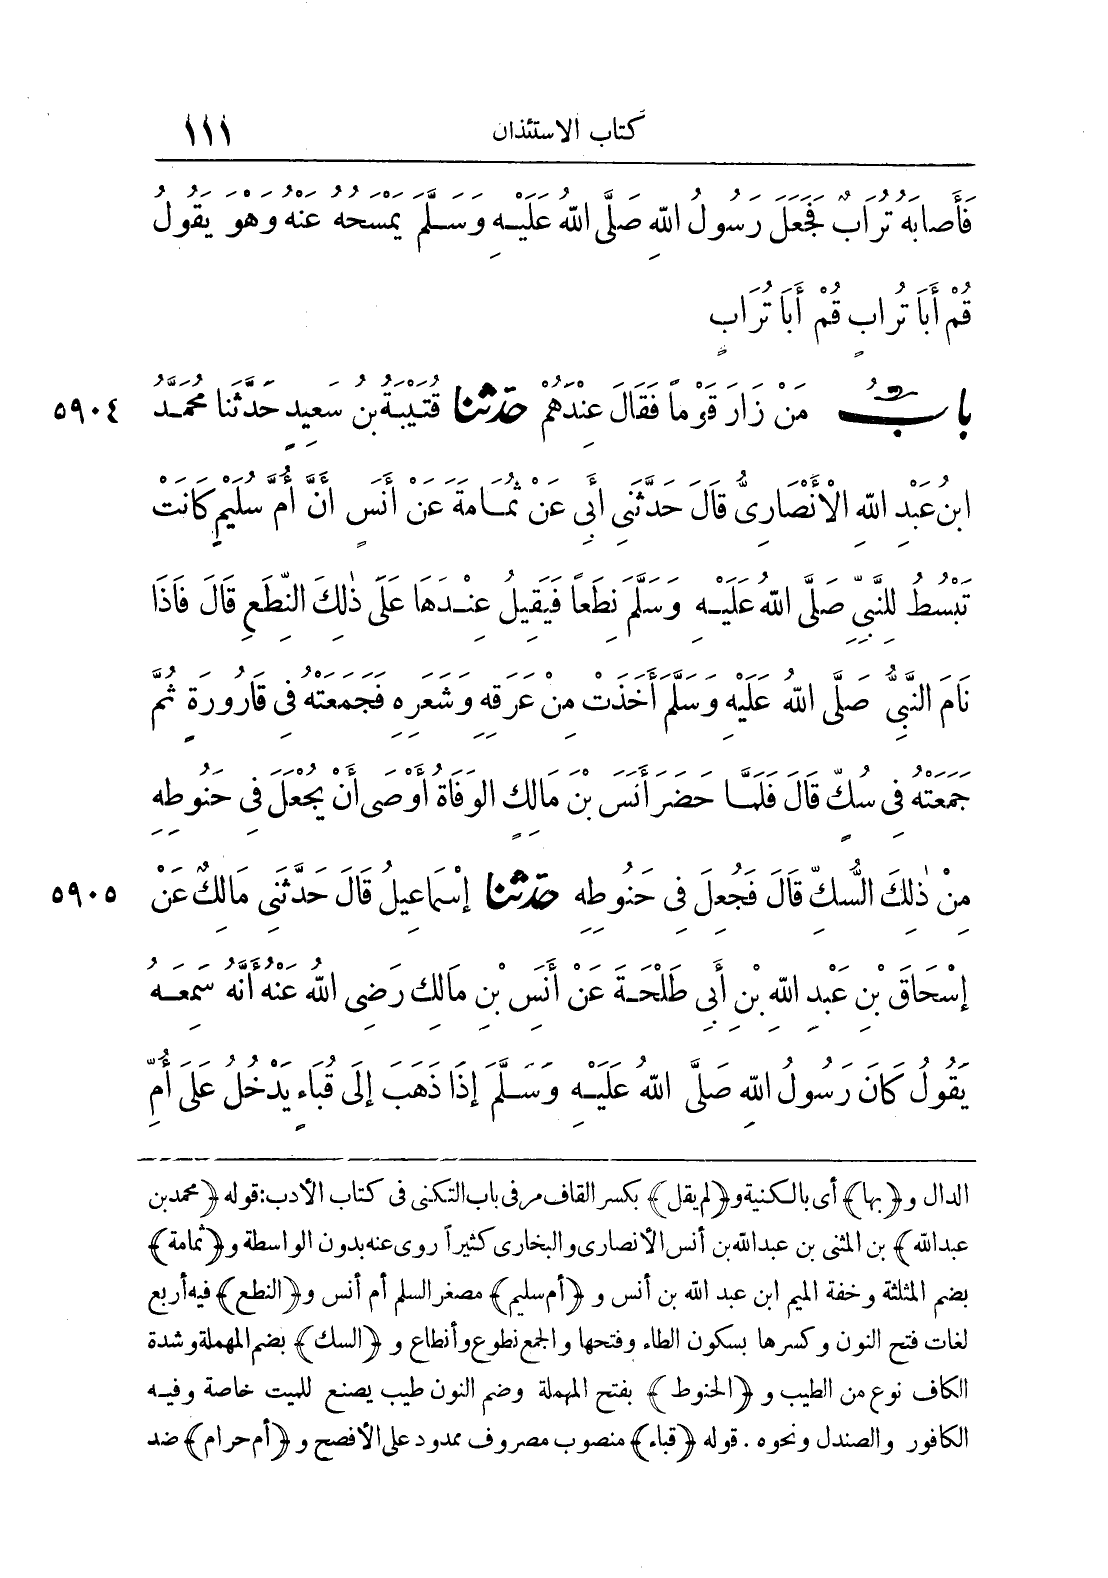 كتاب الاستئذان ١١١
فَأَصَابَهُ تُرَابٌ فَجَعَلَ رَسُولُ اللهِ صَلَّى اللهُ عَلَيْهِ وَسَلَّمَ يَمْسَحُهُ عَنْهُ وَهُوَ يَقُولُ
قُمْ أَبَا تُرَابٍ قُمْ أَبَا تُرَابٍ
بابُ مَنْ زَارَ قَوْماً فَقَالَ عِنْدَهُمْ حدثنا قُتَيْبَةُ بن سَعِيدٍ حَدَّثَنَا مُحَمَّدُ ٥٩٠٤
ابنُ عَبْدِ اللهِ الْأَنْصَارِىُّ قَالَ حَدَّثَنِى أَبِى عَنْ ثُمَامَةَ عَنْ أَنَسٍ أَنَّ أُمَّ سُلَيْمٍ كَانَتْ
تَبْسُطُ لِلنَّبِىِّ صَلَّى اللهُ عَلَيْهِ وَسَلَّمَ نِطَعاً فَيَقِيلُ عِنْدَهَا عَلَى ذٰلِكَ النِّطَعِ قَالَ فَاذَا
نَامَ النَّبِىُّ صَلَّى اللهُ عَلَيْهِ وَسَلَّمَ أَخَذَتْ مِنْ عَرَقِهِ وَشَعَرِهِ فَجَمَعَتْهُ فِى قَارُورَةٍ ثُمَّ
جَمَعَتْهُ فِى سُكٍّ قَالَ فَلَمَّا حَضَرَ أَنَسَ بْنَ مَالِكٍ الوَفَاةُ أَوْصَى أَنْ يُجْعَلَ فِى حَنُوطِهِ
مِنْ ذٰلِكَ السُّكِّ قَالَ فَجُعِلَ فِى حَنُوطِهِ حدثنا إِسْمَاعِيلُ قَالَ حَدَّثَنِى مَالِكٌ عَنْ ٥٩٠٥
إِسْحَاقَ بْنِ عَبْدِ اللهِ بْنِ أَبِى طَلْحَةَ عَنْ أَنَسِ بْنِ مَالِكٍ رَضِى اللهُ عَنْهُ أَنَّهُ سَمِعَهُ
يَقُولُ كَانَ رَسُولُ اللهِ صَلَّى اللهُ عَلَيْهِ وَسَلَّمَ إِذَا ذَهَبَ إِلَى قُبَاءٍ يَدْخُلُ عَلَى أُمِّ
الدال و ﴿بها﴾ أى بالكنية و ﴿لم يقل﴾ بكسر القاف مر فى باب التكنى فى كتاب الأدب: قوله ﴿محمد بن
عبد الله﴾ بن المثنى بن عبد الله بن أنس الأنصارى والبخارى كثيراً روى عنه بدون الواسطة و ﴿ثمامة﴾
بضم المثلثة وخفة الميم ابن عبد الله بن أنس و ﴿أم سليم﴾ مصغر السلم أم أنس و ﴿النطع﴾ فيه أربع
لغات فتح النون وكسرها بسكون الطاء وفتحها والجمع نطوع وأنطاع و ﴿السك﴾ بضم المهملة وشدة
الكاف نوع من الطيب و ﴿الحنوط﴾ بفتح المهملة وضم النون طيب يصنع للميت خاصة وفيه
الكافور والصندل ونحوه . قوله ﴿قباء﴾ منصوب مصروف ممدود على الأفصح و ﴿أم حرام﴾ ضد